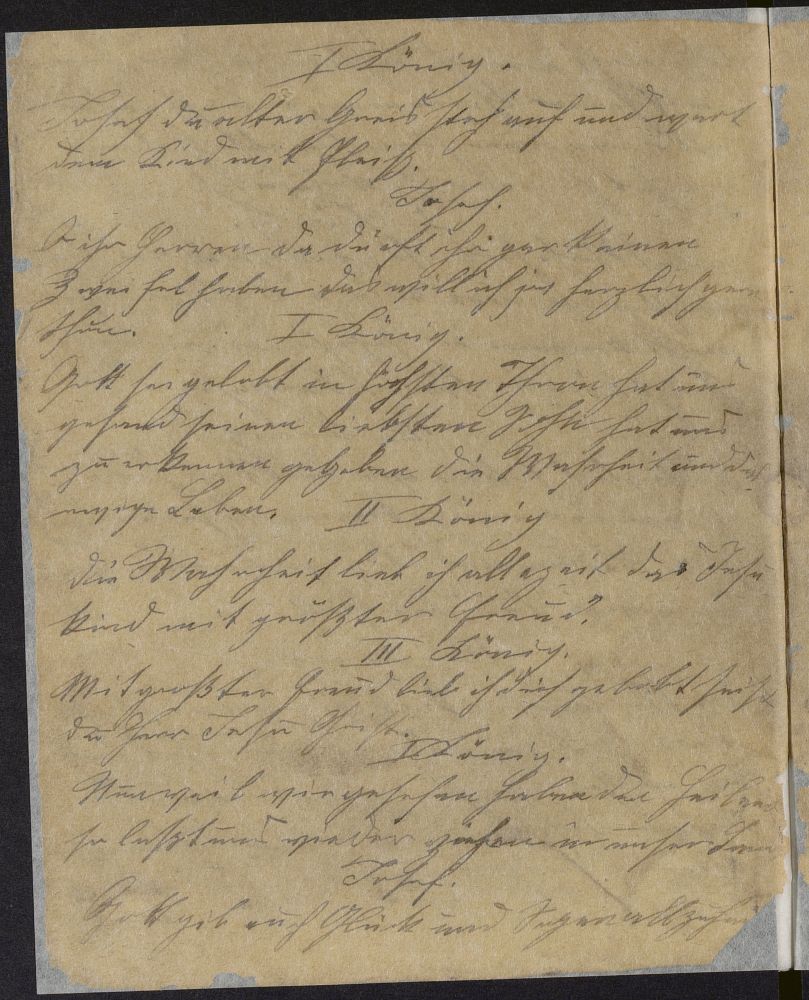 I König.
Josef du alter Greis steh auf und wart
dem Kind mit Fleiß.
Josef.
O ihr Herren da dürft ihr gar keinen
Zweifel haben das will ich ja herzlich gern
thun.
I König.
Gott sei gelobt im höchsten Thron hat uns
gesand seinen liebsten Sohn hat uns
zu erkennen gegeben die Wahrheit und das
ewige Leben.
II König
Die Wahrheit lieb ich allezeit das Jesu
kind mit größter Freud.
III König.
Mit großter Freud lieb ich dich gelobt seist
du Herr Jesu Christ.
I König.
Nun weil wir gesehen haben den Heiland
so laßt uns wieder ziehen in unser Land
Josef.
Gott gib euch Glück und Segen